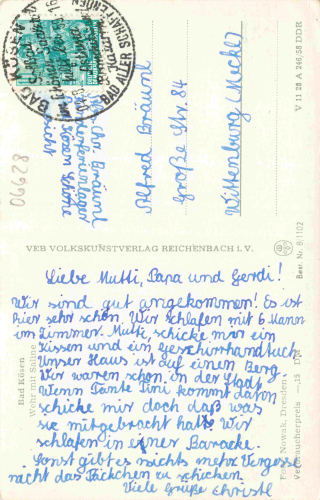 BAD KÖSEN
BAD ALLER SCHAFFENDEN
V 11 28 A 246/58 DDR
Alfred Bräunl
Große Str. 84
Wittenburg (Meckl)
Chr. Bräunl
06628
VEB VOLKSKUNSTVERLAG REICHENBACH i. V.
Best. Nr. B/1102
Liebe Mutti, Papa und Gerdi!
Wir sind gut angekommen! Es ist
hier sehr schön. Wir schlafen mit 6 Mann
im Zimmer. Mutti, schicke mir ein
Kissen und ein Geschirrhandtuch.
Unser Haus ist auf einen Berg.
Wir waren schon in der Stadt.
Wenn Tante Tini kommt dann
schicke mir doch daß was
sie mitgebracht hat. Wir
schlafen in einer Baracke.
Sonst gibt es nichts mehr. Vergesse
nicht das Päckchen zu schicken.
Viele Grüße Christl
Bad Kösen
Wehr mit Saline
Foto: Nowak, Dresden
Verbraucherpreis —,15 DM